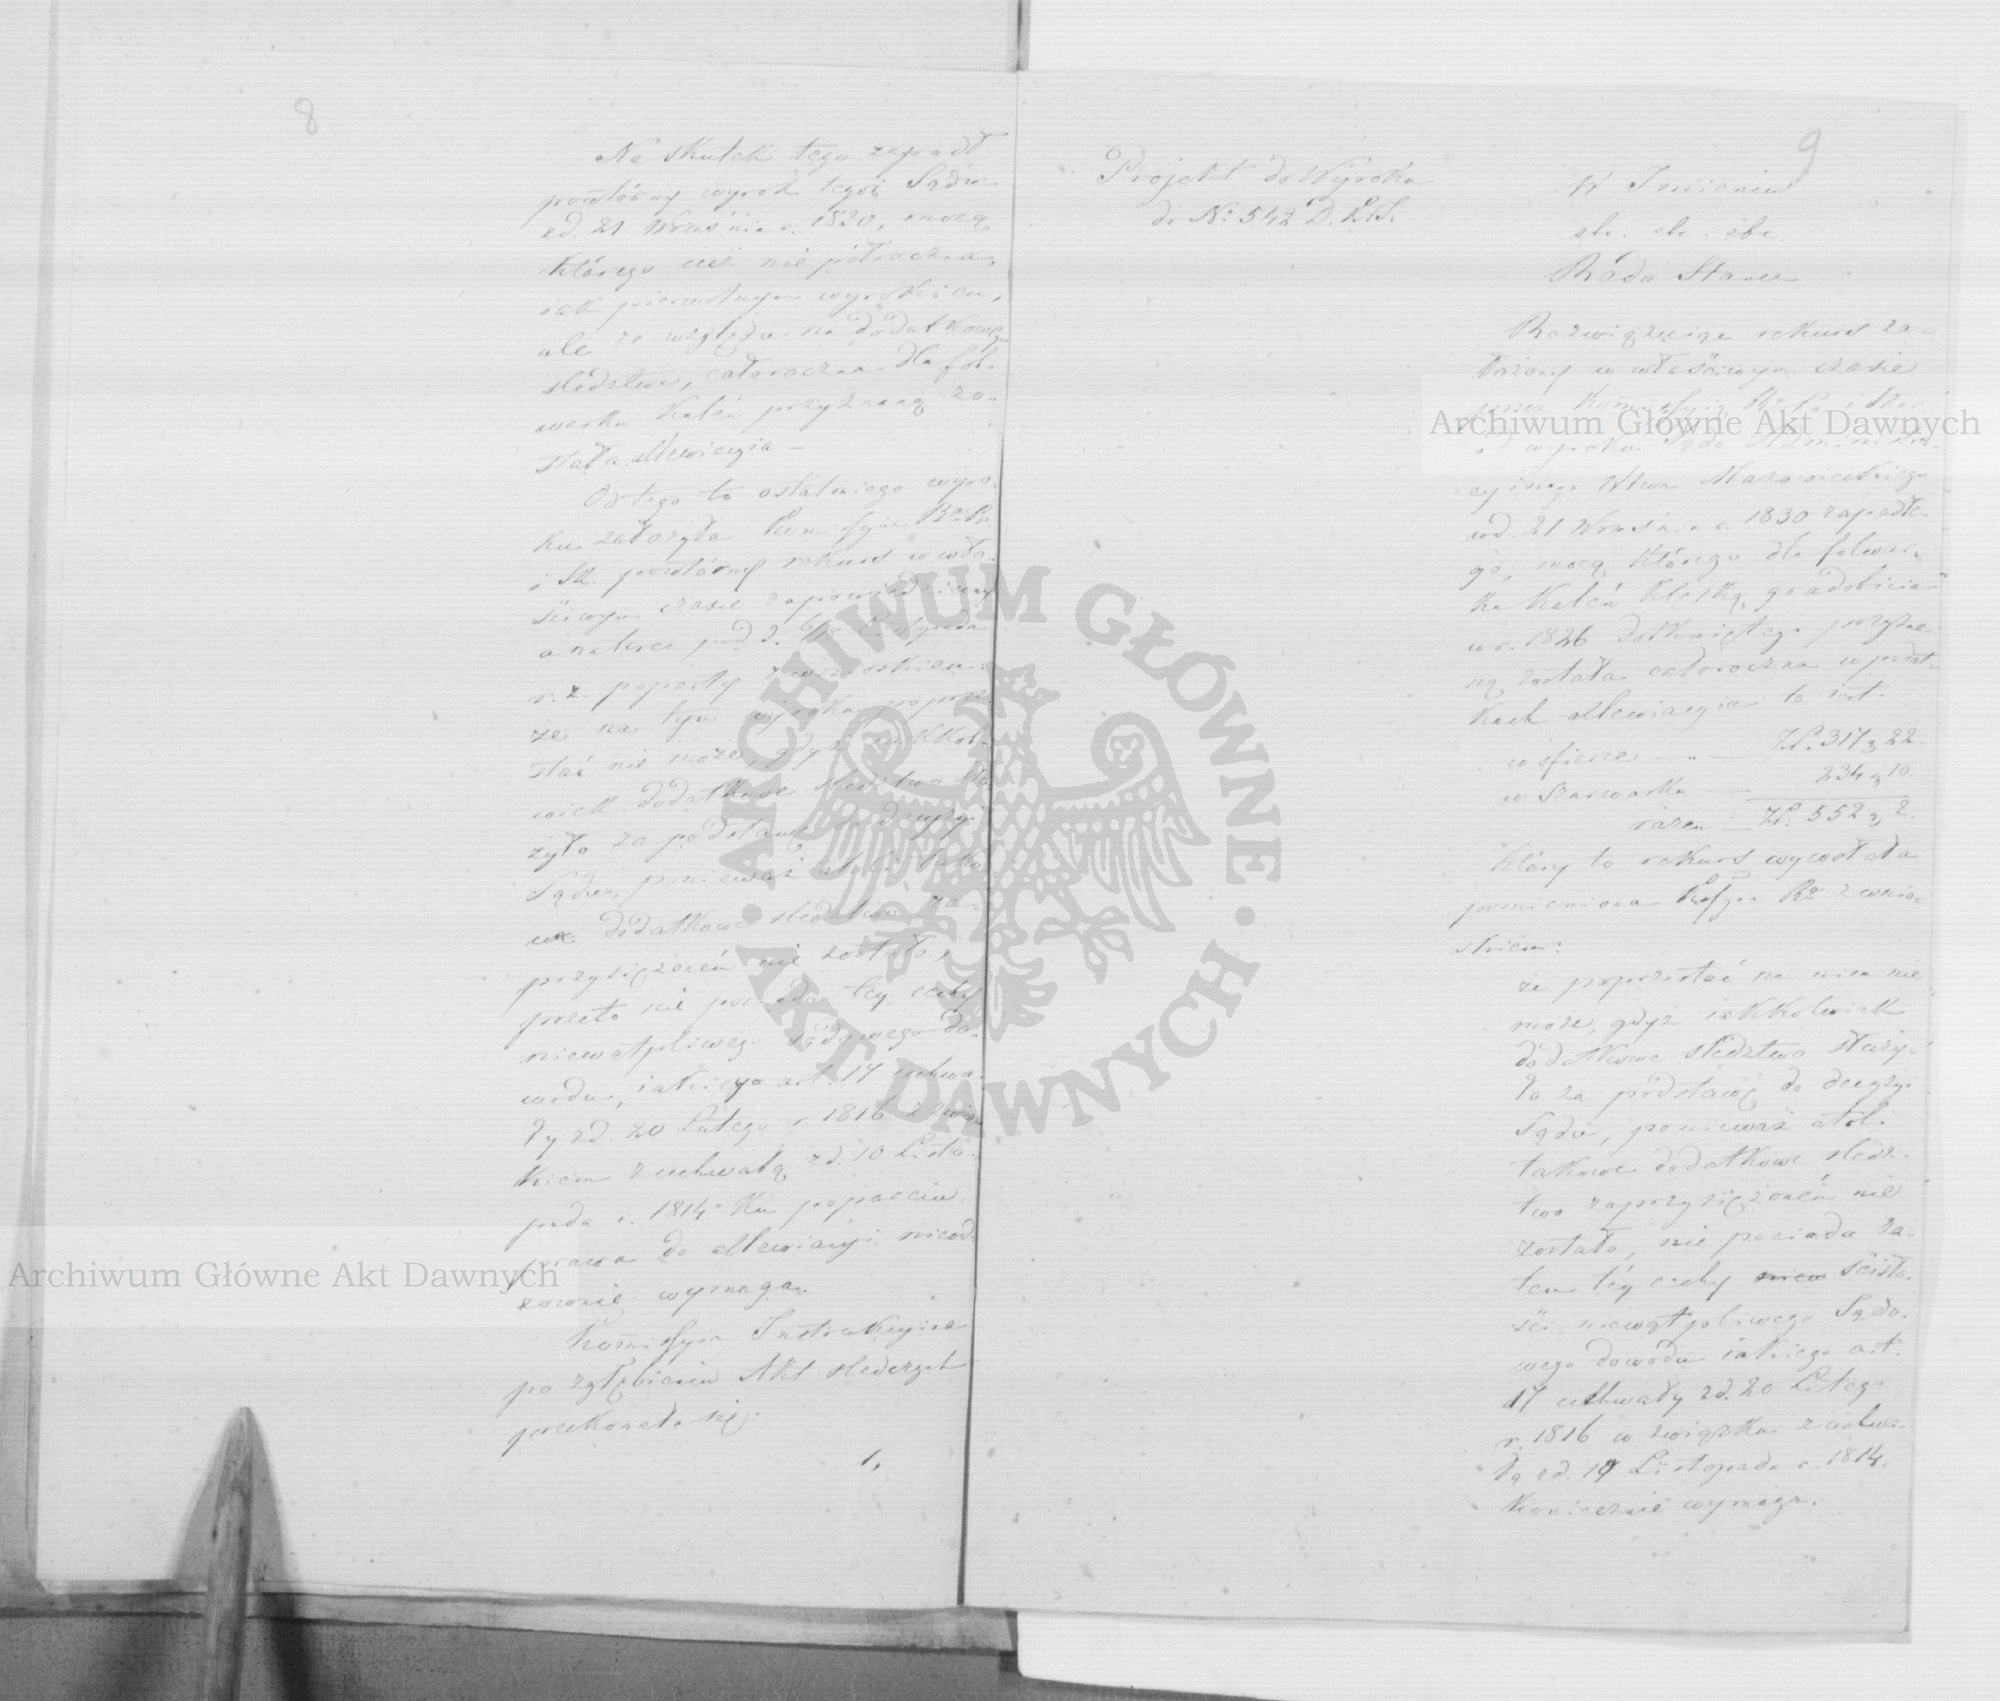 8
Na skutek tego zapadł
powtórny wyrok tegoż Sądu
zd. 21 Września r. 1830, mocą
którego już nie półroczna,
iak pierwotnym wyrokiem,
ale ze względu na dodatkowe
śledztwo, całoroczna dla fol-
warku Kaleń przyznaną zo-
stała allewiacyia –
Od tego to ostatniego wyro-
ku założyła Kommissyia R. P.
i Sk. powtórny rekurs w wła-
ściwym czasie zapowiedziany
a natenczas pod d.
r. z. poparty z wnioskiem:
że na tym wyroku poprze-
stać nie może, gdyż iakkol-
wiek dodatkowe śledztwo słu-
żyło za podstawę do decyzyi
Sądu, ponieważ atoli tako-
we dodatkowe śledztwo za-
przysiężoném nie zostało,
przeto nie posiada tey cechy
niewątpliwego sądowego do-
wodu, iakiego art. 17 uchwa-
ły zd. 20 Lutego r. 1816 w związ-
kiem z uchwałą zd. 10 Listo-
pada r. 1814 ku poparciu
prawa do allewiacyi nieod-
zownie wymaga.
Kommissyia Instrukcyina
po zgłębieniu Akt śledczych
przekonała się:
1,
9
Projekt do Wyroku
do No. 542 D. R. S.
W Imieniu
etc. etc. etc.
Rada Stanu
Rozwiązuiąc rekurs za-
łożony w właściwym czasie
przez Kommissyią R. P. i Skar.
od wyroku Sądu Administra-
cyinego Wtwa Mazowieckiego
wd. 21 Września r. 1830 zapadłe-
go, mocą którego dla folwar-
ku Kaleń klęską gradobicia
w r. 1826 dotkniętego przyzna-
ną została całoroczna w podat-
kach allewiacyia to iest:
w ofierze — Zł. 317 „ 22.
w Szarwarku — 234 „ 10.
razem — Zł. 552 „ 2.
Który to rekurs wywołała
pomieniona Kssyia Rz. z wnio-
skiem:
że poprzestać na nim nie
może, gdyż iakkolwiek
dodatkowe śledztwo służy-
ło za podstawę do decyzyi
Sądu, ponieważ atoli
takowe dodatkowe śledz-
two zaprzysiężoném nie
zostało, nie posiada za-
tem téy cechy niew ścisło-
ści niewątpliwego Sądo-
wego dowodu iakiego art.
17 uchwały zd. 20 Lutego
r. 1816 w związku z uchwa-
łą zd. 19 Listopada r. 1814.
koniecznie wymaga.
Archiwum Główne Akt Dawnych
Archiwum Główne Akt Dawnych
ARCHIWUM GŁÓWNE · AKT DAWNYCH ·